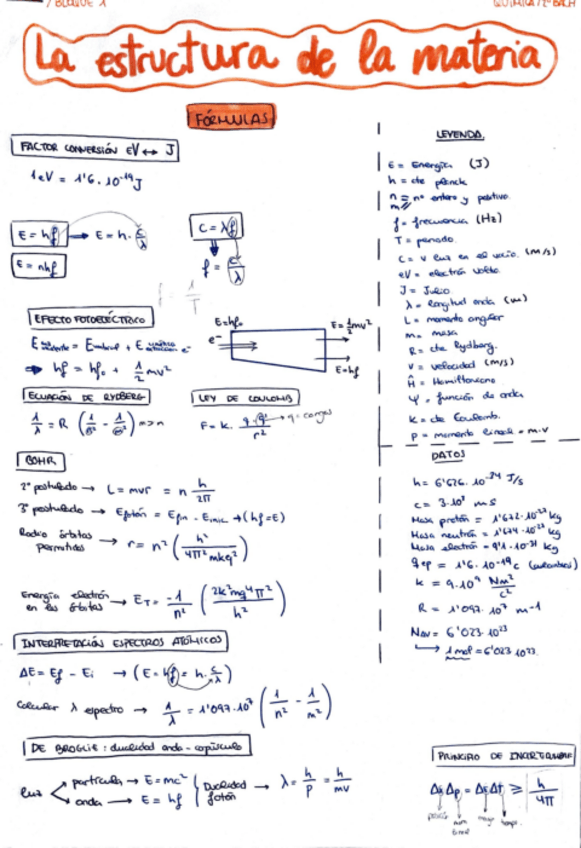 /BLOQUE 1
QUÍMICA/2ºBACH
La estructura de la materia
FÓRMULAS
FACTOR CONVERSIÓN eV ↔ J
1eV = 1'6 · 10⁻¹⁹ J
E = hf → E = h · c/λ
E = nhf
C = λf
f = c/λ
1/T
EFECTO FOTOELÉCTRICO
→ hf = hf₀ + 1/2 mv²
E=hf₀
e⁻
E = 1/2 mv²
E=hf
ECUACIÓN DE RYDBERG
1/λ = R (1/n² - 1/m²) m>n
LEY DE COULOMB
F = K · q·q'/r² → q = cargas
BOHR
2º postulado → L = mvr = n h/2π
3º postulado → Efotón = Efin - Einic → (hf=E)
Radio órbitas permitidas → r = n² (h²/4π²mkq²)
Energía electrón en las órbitas → E_T = -1/n² (2k²mq⁴π²/h²)
INTERPRETACIÓN ESPECTROS ATÓMICOS
ΔE = Ef - Ei → (E = hf = h · c/λ)
Calcular λ espectro → 1/λ = 1'097·10⁷ (1/n² - 1/m²)
DE BROGLIE: dualidad onda-copúsculo
luz
partícula → E=mc²
onda → E = hf
Dualidad fotón → λ = h/p = h/mv
LEYENDA
E = Energía (J)
h = cte planck
n m = nº entero y positivo
f = frecuencia (Hz)
T = periodo
C = v luz en el vacío. (m/s)
eV = electrón voltio
J = Julio
λ = longitud onda (m)
L = momento angular
m = masa
R = cte Rydberg
v = velocidad (m/s)
Ĥ = Hamiltoniano
Ψ = función de onda
K = cte Coulomb.
p = momento lineal = m·v
DATOS
h = 6'626 · 10⁻³⁴ J/s
c = 3·10⁸ m s
Masa protón = 1'672·10⁻²⁷ Kg
Masa neutrón = 1'674·10⁻²⁷ Kg
Masa electrón = 9'1·10⁻³¹ Kg
q ep = 1'6 · 10⁻¹⁹ c (culombios)
K = 9·10⁹ Nm²/c²
R = 1'097 · 10⁷ m⁻¹
NAV = 6'023·10²³
→ 1 mol = 6'023·10²³
PRINCIPIO DE INCERTIDUMBRE
Δx Δp = ΔE Δt ≥ h/4π